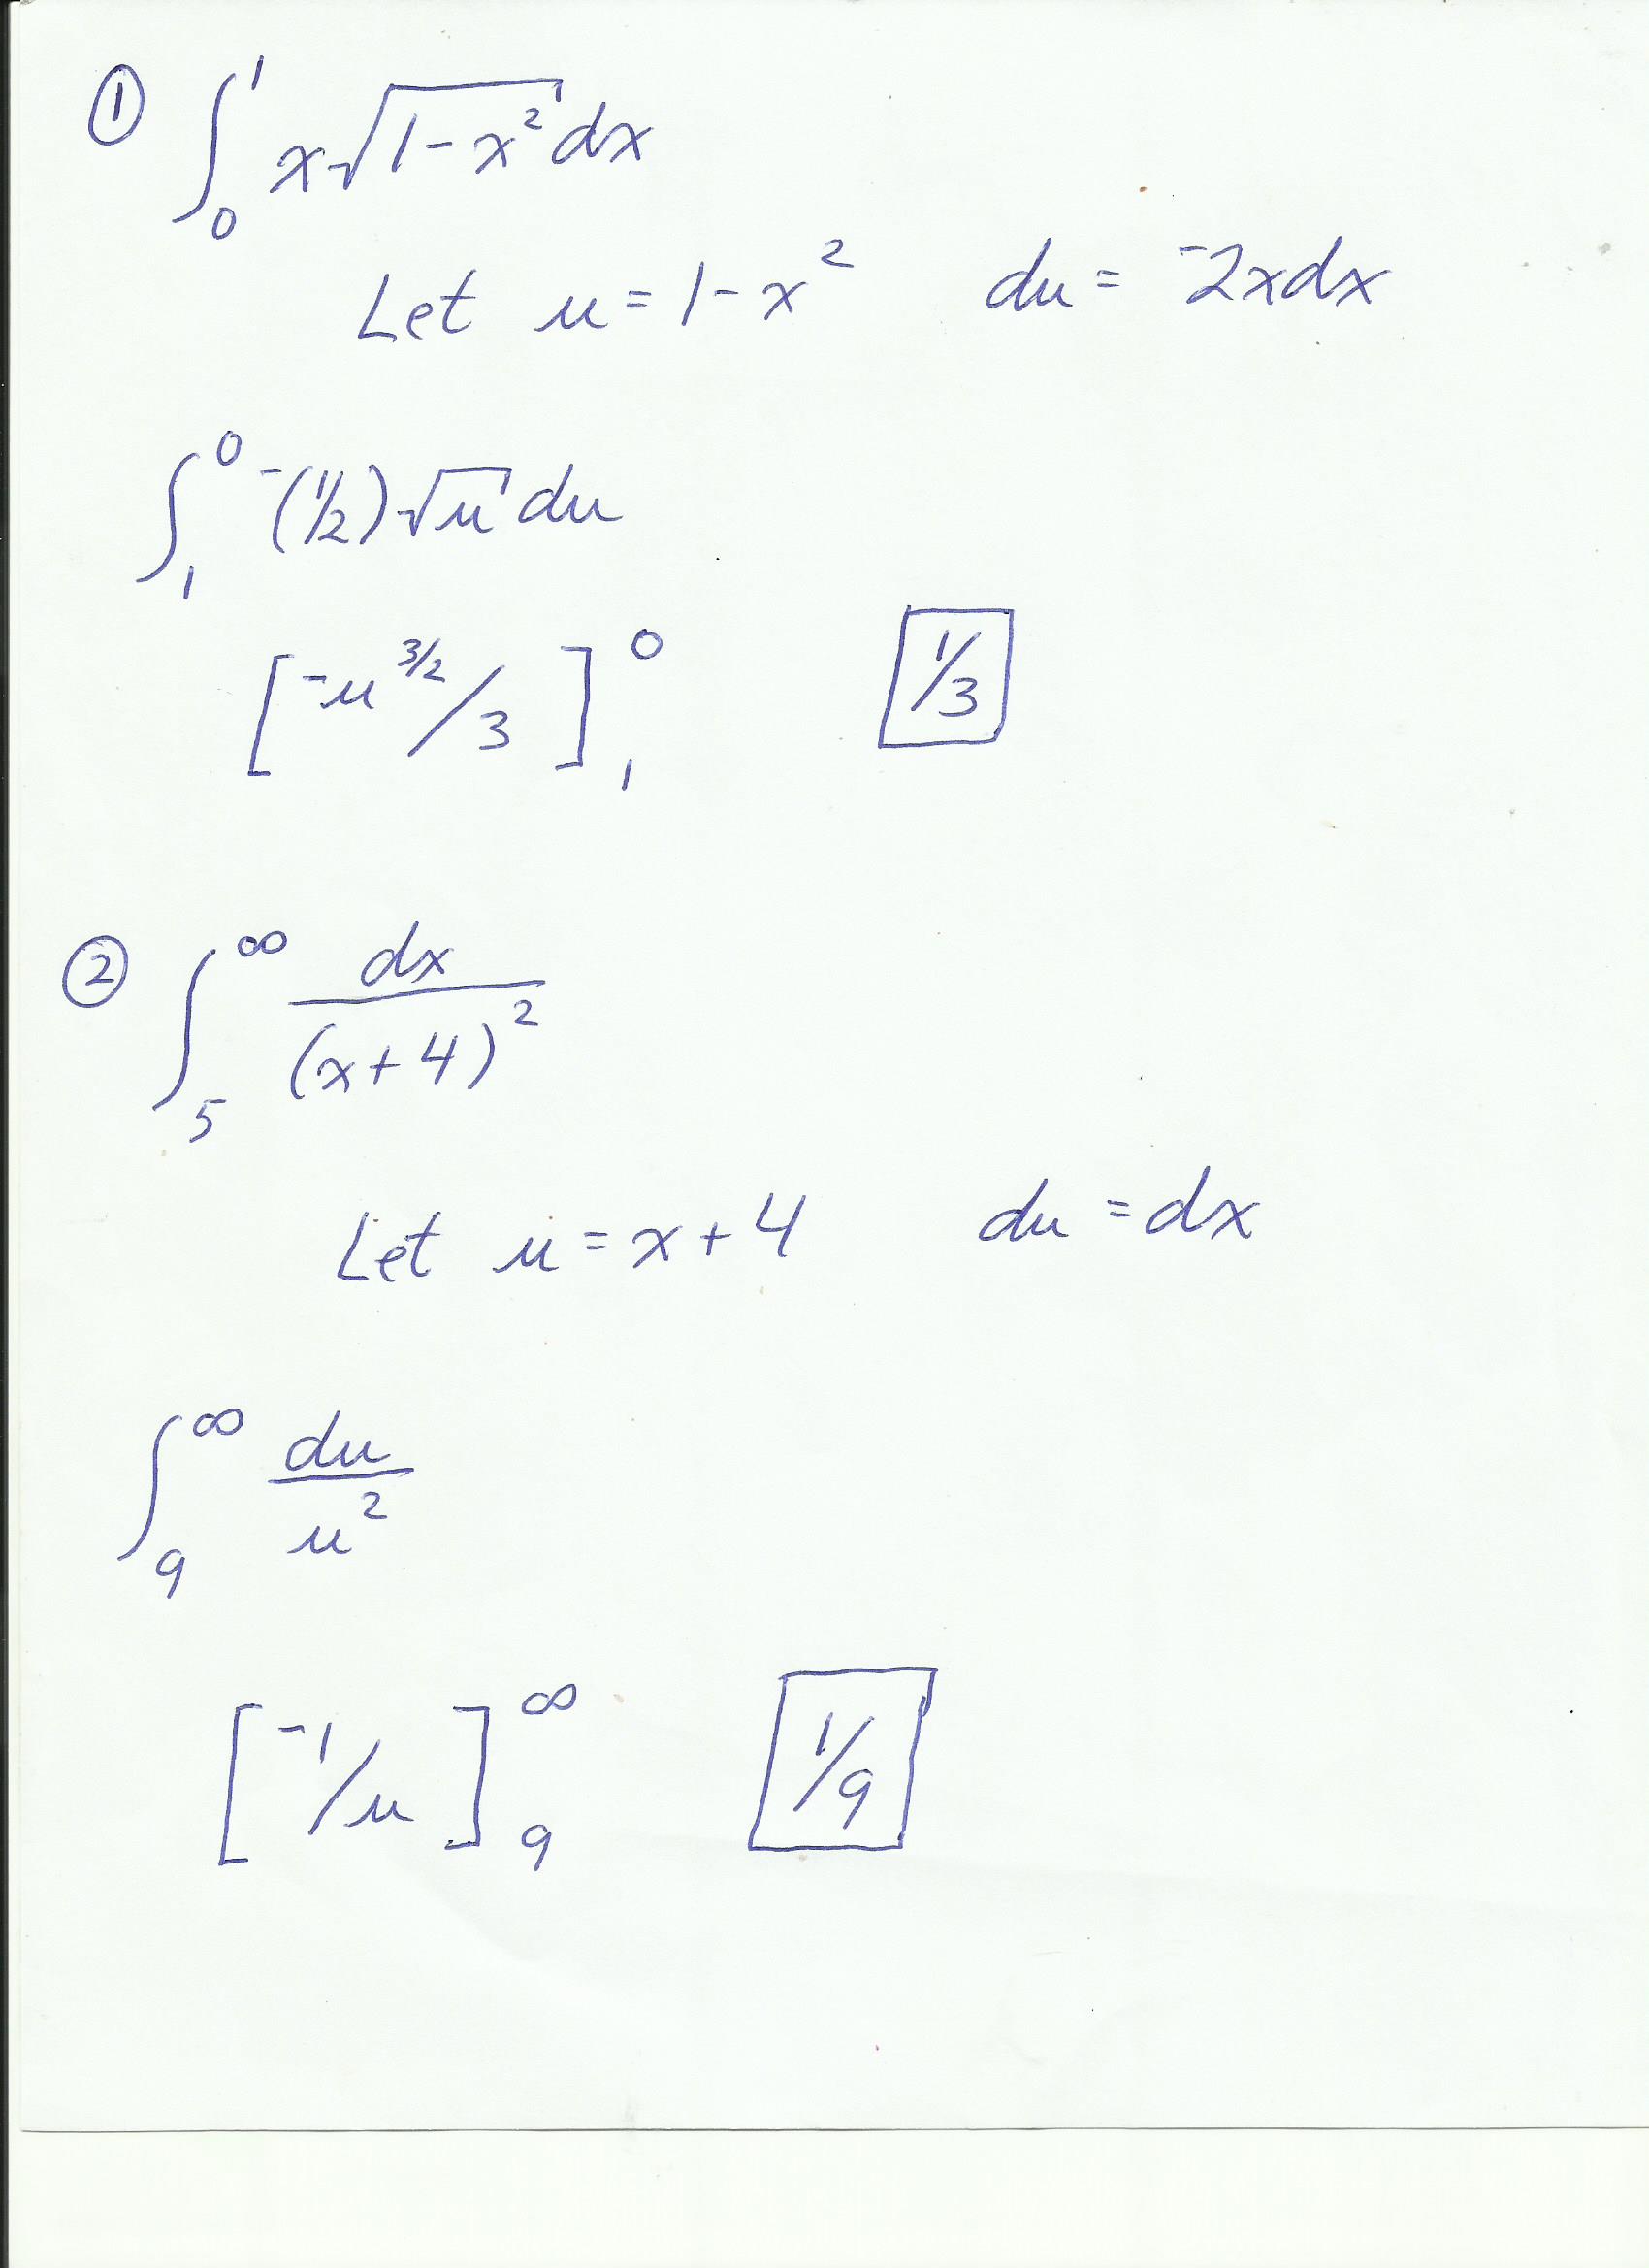 ① ∫₀¹ x√(1-x²) dx
Let u = 1-x² du = ⁻2xdx
∫₁⁰ ⁻(1/2)√u du
[⁻u^(3/2)/3]₁⁰ 1/3
② ∫₅^∞ dx/(x+4)²
Let u = x+4 du = dx
∫₉^∞ du/u²
[⁻1/u]₉^∞ 1/9